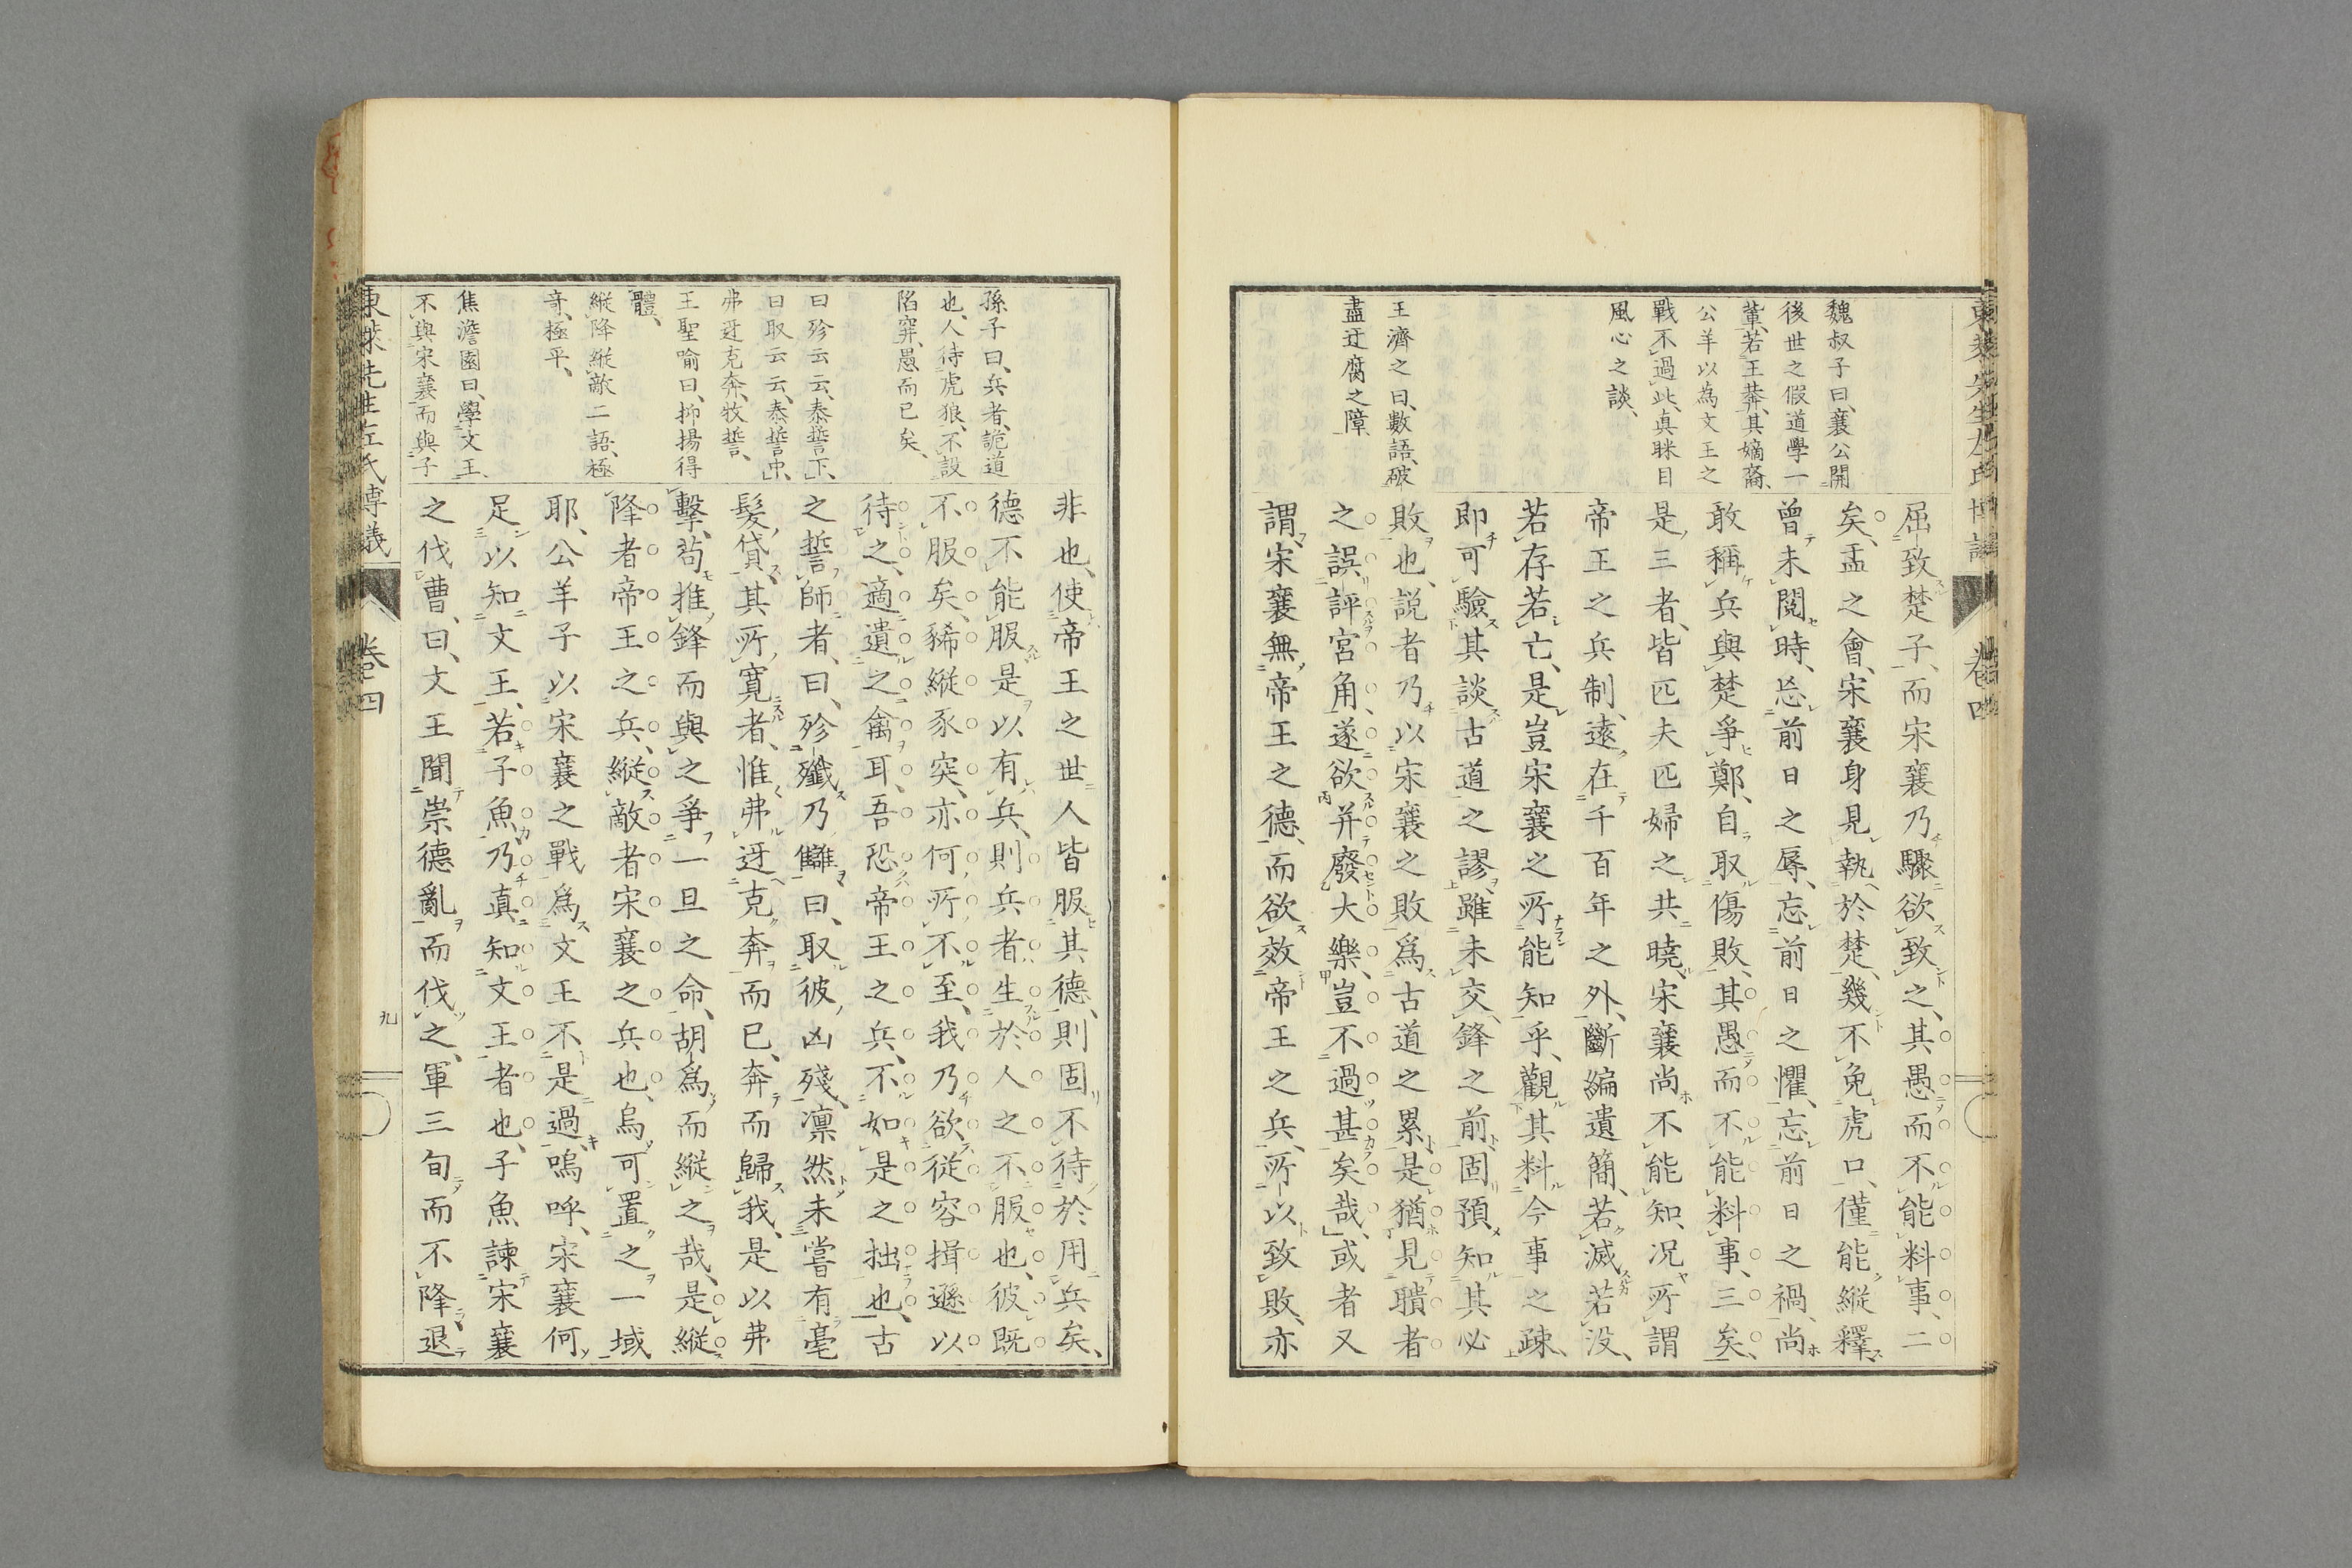 魏叔子曰、襄公開
後世之假道學一
輩、若王莽、其嫡裔、
公羊以為文王之
戰不過此、真眯目
風心之談、
王濟之曰、數語、破
盡迂腐之障、
屈致楚子、而宋襄乃驟欲致之、其愚而不能料事、二
矣、盂之會、宋襄身見執於楚、幾不免虎口、僅能縱釋、
曾未閱時、忘前日之辱、忘前日之懼、忘前日之禍、尚
敢稱兵與楚爭鄭、自取傷敗、其愚而不能料事、三矣、
是三者、皆匹夫匹婦之共曉、宋襄尚不能知、况所謂
帝王之兵制、遠在千百年之外、斷編遺簡、若滅若没、
若存若亡、是豈宋襄之所能知乎、觀其料今事之疎、
即可驗其談古道之謬、雖未交鋒之前、固預知其必
敗也、説者乃以宋襄之敗、爲古道之累、是猶見聵者
之誤評宮角、遂欲并廢大樂、豈不過甚矣哉、或者又
謂、宋襄無帝王之德、而欲效帝王之兵、所以致敗、亦
孫子曰、兵者、詭道
也、人待虎狼、不設
陷穽、愚而已矣、
曰殄云云、泰誓下、
曰取云云、泰誓中、
弗迓克奔、牧誓、
王聖喻曰、抑揚得
體、
縱降縱敵二語、極
奇、極平、
焦澹園曰、學文王、
不與宋襄、而與子
非也、使帝王之世人皆服其德、則固不待於用兵矣、
德不能服、是以有兵、則兵者生於人之不服也、彼既
不服矣、豨縱豕突、亦何所不至、我乃欲從容揖遜以
待之、適遺之禽耳、吾恐帝王之兵、不如是之拙也、古
之誓師者、曰、殄殲乃讎、曰、取彼凶殘、凛然未嘗有毫
髮貸、其所寬者、惟弗迓克奔而已、奔而歸我、是以弗
擊、苟推鋒而與之爭一旦之命、胡爲而縱之哉、是縱
降者帝王之兵、縱敵者宋襄之兵也、烏可置之一域
耶、公羊子以宋襄之戰爲文王不是過、嗚呼、宋襄何
足以知文王、若子魚乃真知文王者也、子魚諫宋襄
之伐曹、曰、文王聞崇德亂而伐之、軍三旬而不降、退
東萊先生左氏博議
卷四
九